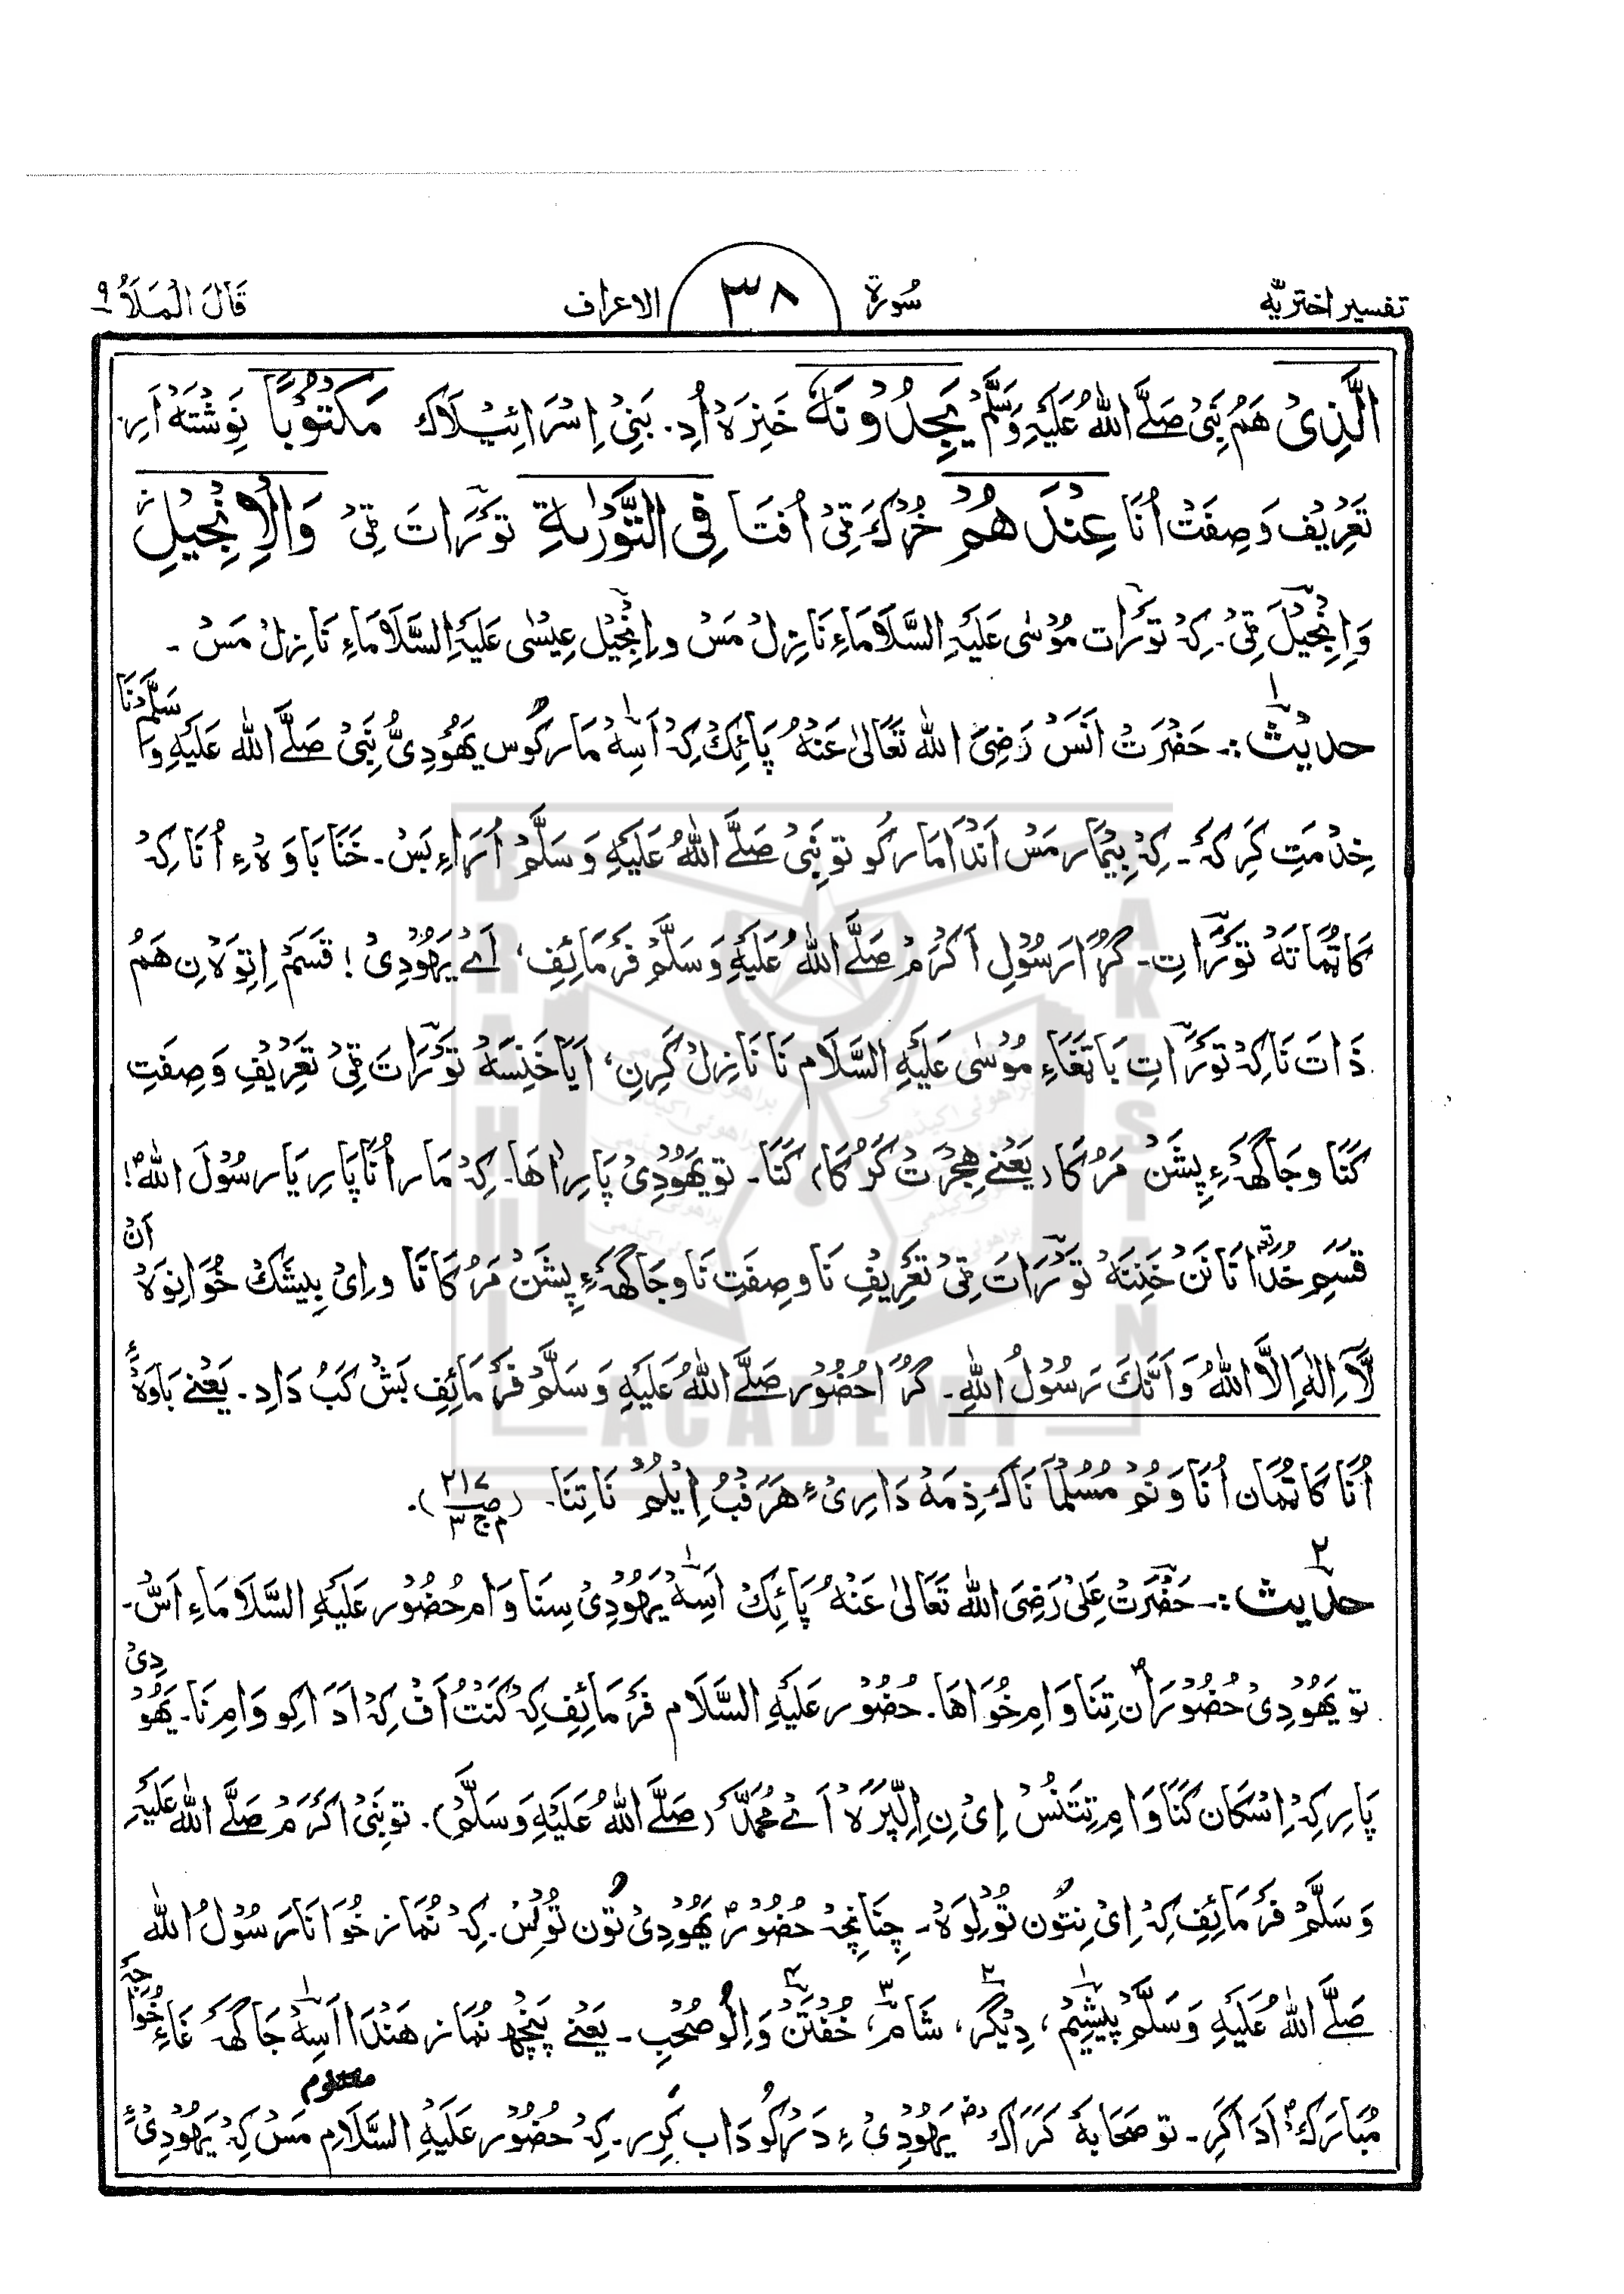 تفسیر اختریّه سُورة ۳۸ الاعراف قَالَ الْمَلَاُ ۹
الَّذِیْ هَمُ نَبِیْ صَلَّے اللّٰهُ عَلَیْهِ وَسَلَّمْ یَجِدُوْنَهٗ خَنِرَهْ اُدِ. بَنِیْ اِسْرَائِیْلَاک مَکْتُوْبًا نِوِشْتَهْ اَرِ
تَعْرِیْف وَ صِفَتْ اُنَا عِنْدَهُمْ خُرْکَ ٹِیْ اُفتَا فِی التَّوْرٰىةِ تَوْرَاتَ ٹِیْ وَالْاِنْجِیْلِ
وَاِنْجِیْلَ ٹِیْ. کِهْ تَوْرَات مُوْسٰی عَلَیْهِ السَّلَامَاءِ نَازِلْ مَسْ وِاِنْجِیْل عِیْسٰی عَلَیْهِ السَّلَامَاءِ نَازِلْ مَسْ ۔
حدیث ۱ :۔ حَضْرَتْ اَنَسْ رَضِیَ اللّٰه تَعَالٰی عَنْهُ پَائِکْ کِهْ اَسِهْ مَارکُوس یَهُوْدِیُّ نَبِیْ صَلَّے اللّٰه عَلَیْهِ وَ سَلَّمْ نَا
خِدْمَتِ کَرِکهٗ ۔ کِهْ بِیْمَار مَسْ اَنْدَا مَارکُو تو نَبِیْ صَلَّے اللّٰهُ عَلَیْهِ وَ سَلَّمْ اُرَاءِ بَسْ ۔ خَنَا بَاوَهْ ءِ اُنَا کِهْ
کَاٹُمَاتَهْ تَوْرَاتِ ۔ گُرَا رَسُوْلِ اَکْرَمْ صَلَّے اللّٰهُ عَلَیْهِ وَ سَلَّمْ فَرْمَائِفِ، اَے یَهُوْدِیْ! قَسَمْ اِتِوَهْ نِ هَمُ
ذَات نَا کِهْ تَوْرَاتِ بَاتَغَاءِ مُوْسٰی عَلَیْهِ السَّلَام نَا نَازِلْ کَرِنِ، اَیَا خَنِسَهْ تَوْرَاتَ ٹِیْ تَعْرِیْفِ وَ صِفَتِ
کَنَا وَ جَاگَهْ ءِ پِشَنْ مَرُکَا (یَعْنِے هِجْرَتْ کَرُکَا) کَنَا ۔ تو یَهُوْدِیْ پَارِ اَهَا ۔ کِهْ مَار اُنَا پَارِ یَا رَسُوْلَ اللّٰه!
قَسَمِ خُدَا نَا نَنْ خَنِنَهْ تَوْرَاتَ ٹِیْ تَعْرِیْفِ نَا وِ صِفَتِ نَا وَ جَاگَهْ ءِ پِشَنْ مَرُکَا نَا وِ اِیْ بِیْشَکْ خُوَانِوَهْ اَنْ
لَآ اِلٰهَ اِلَّا اللّٰهُ وَ اَنَّكَ رَسُوْلُ اللّٰهِ ۔ گُرَا حُضُوْر صَلَّے اللّٰهُ عَلَیْهِ وَ سَلَّمْ فَرْمَائِفِ بَشْ کَبُ دَادِ ۔ یَعْنِے بَاوَهْ ءِ
اُنَا کَاٹُمَان اُنَا وَ نُمْ مُسُلمَانَاک ذِمَهْ دَارِیْ ءِ هَرْفَبُ اِیْلُمْ نَا تِنَا ۔ (ص ۲۱۷ م ج ۳).
حدیث ۲ :۔ حَضْرَتْ عَلِیْ رَضِیَ اللّٰه تَعَالٰی عَنْهُ پَائِکْ اَسِهْ یَهُوْدِیْ سِنَا وَام حُضُوْر عَلَیْهِ السَّلَامَاءِ اَسْ ۔
تو یَهُوْدِیْ حُضُوْرَان تِنَا وَام خُوَاهَا ۔ حُضُوْر عَلَیْهِ السَّلَام فَرْمَائِفِ کِهْ کَنْتُ اَفْ کِهْ اَدَا کِو وَامِ نَا ۔ یَهُوْدِیْ
پَارِ کِهْ اِسْکَان کَنَا وَام تِتَنُسْ اِیْ نِ اِلِّپَرَهْ اَے مُحَمَّدْ (صَلَّے اللّٰهُ عَلَیْهِ وَسَلَّمْ). تو نَبِیْ اَکْرَمْ صَلَّے اللّٰه عَلَیْهِ
وَ سَلَّمْ فَرْمَائِفِ کِهْ اِیْ نِتُوْن تُوْلِوَهْ ۔ چِنَانِچِهْ حُضُوْر یَهُوْدِیْ تُوْن تُوْلِسْ ۔ کِهْ نُمَاز خُوَانَا رَسُوْلُ اللّٰه
صَلَّے اللّٰهُ عَلَیْهِ وَ سَلَّمْ پِیْشِمْ ۱، دِیْگَرْ ۲، شَامْ ۳، خُفْتَنْ ۴ وَ اِلُو صُحْبِ ۔ یَعْنِے پَنْچھ نُمَاز هَنْدَا اَسِهْ جَاگَهْ غَاءِ خُوَاجَهْ
مُبَارَکْ اَدَا کَرِ ۔ تو صَحَابَهْ کَرَاکْ یَهُوْدِیْ ءِ دَرْکُو دَاب کَرِر ۔ کِهْ حُضُوْر عَلَیْهِ السَّلَامِ معلوم مَسْ کِهْ یَهُوْدِیْ ءِ
BRAHUI ACADEMY PAKISTAN